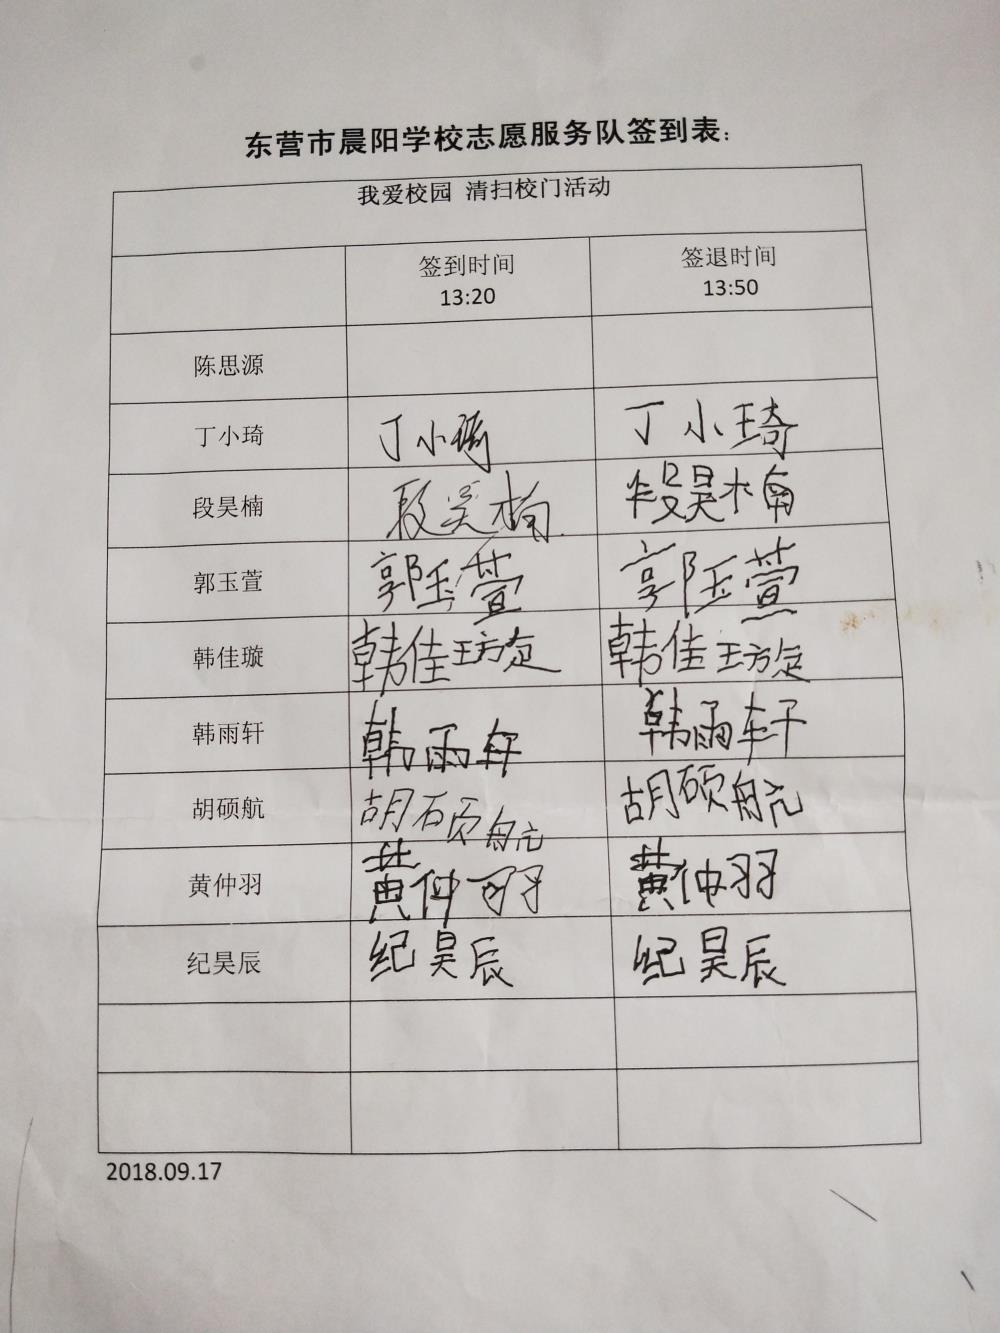 东营市晨阳学校志愿服务队签到表：
我爱校园 清扫校门活动
签到时间 签退时间
13:20 13:50
陈思源
丁小琦 丁小琦 丁小琦
段昊楠 段昊楠 段昊楠
郭玉萱 郭玉萱 郭玉萱
韩佳璇 韩佳璇 韩佳璇
韩雨轩 韩雨轩 韩雨轩
胡硕航 胡硕航 胡硕航
黄仲羽 黄仲羽 黄仲羽
纪昊辰 纪昊辰 纪昊辰
2018.09.17